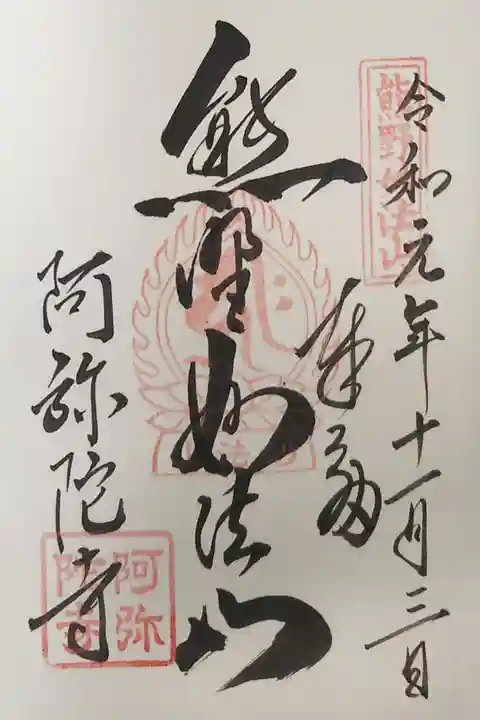 令和元年十一月三日
奉拝
熊野妙法山
阿弥陀寺
熊野妙法山
阿弥陀寺